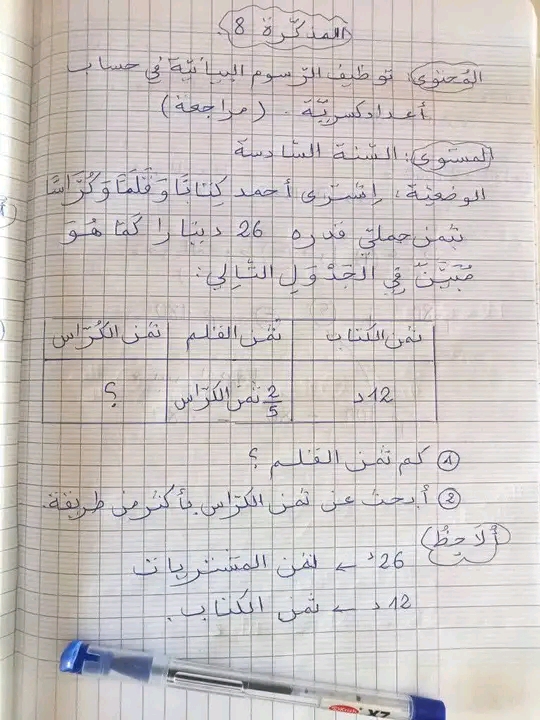 المذكّرة 8
المُحتوى: توظيف الرّسوم البيانيّة في حساب
أعداد كسريّة. (مراجعة)
المستوى: السّنة السّادسة
الوضعيّة: اِشْتَرَى أحمد كِتَابًا وَقَلَمًا وَكُرَّاسًا
بثمن جمليّ قدره 26 دينارا كَمَا هُوَ
مُبَيَّنٌ فِي الْجَدْوَلِ التَّالِي:
ثمن الكتاب ثمن القلم ثمن الكُرّاس
12د 2/5 ثمن الكرّاس ؟
① كم ثمن القلم ؟
② أبحث عن ثمن الكرّاس بأكثر من طريقة.
أُلَاحِظُ
26د ← ثمن المشتريات
12د ← ثمن الكتاب.